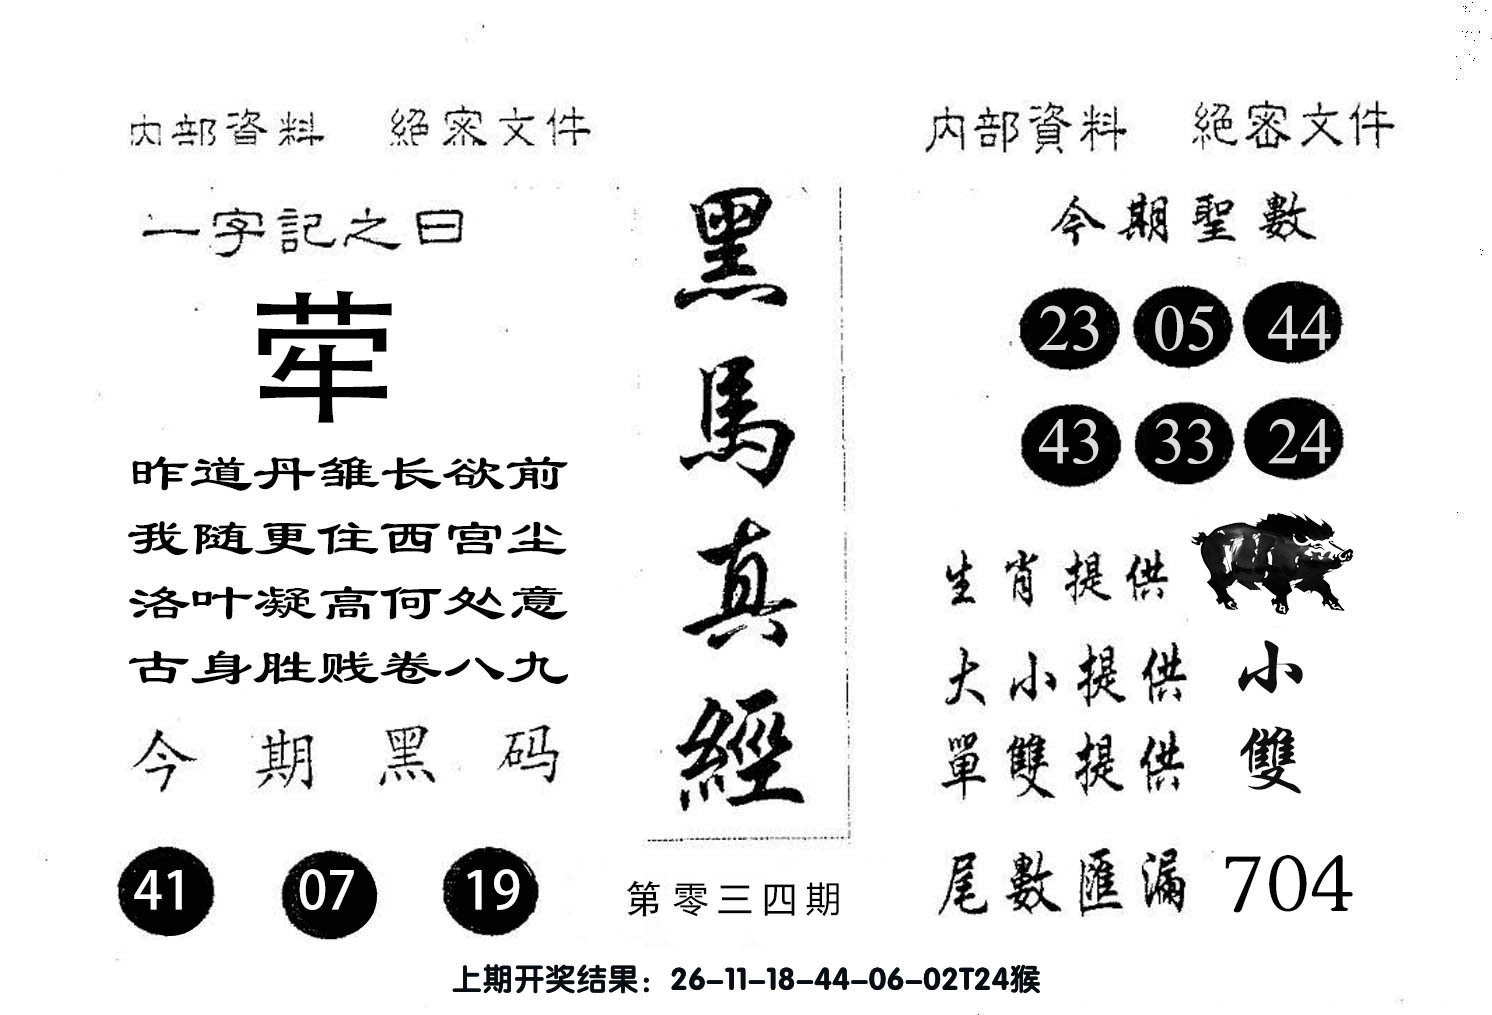 内部資料 絕密文件
一字記之曰
荦
昨道丹雏长欲前
我随更住西宫尘
洛叶凝高何处意
古身胜贱卷八九
今期黑码
41 07 19
黑馬真經
第零三四期
内部資料 絕密文件
今期聖數
23 05 44
43 33 24
生肖提供
大小提供 小
單雙提供 雙
尾數匯漏 704
上期开奖结果：26-11-18-44-06-02T24猴